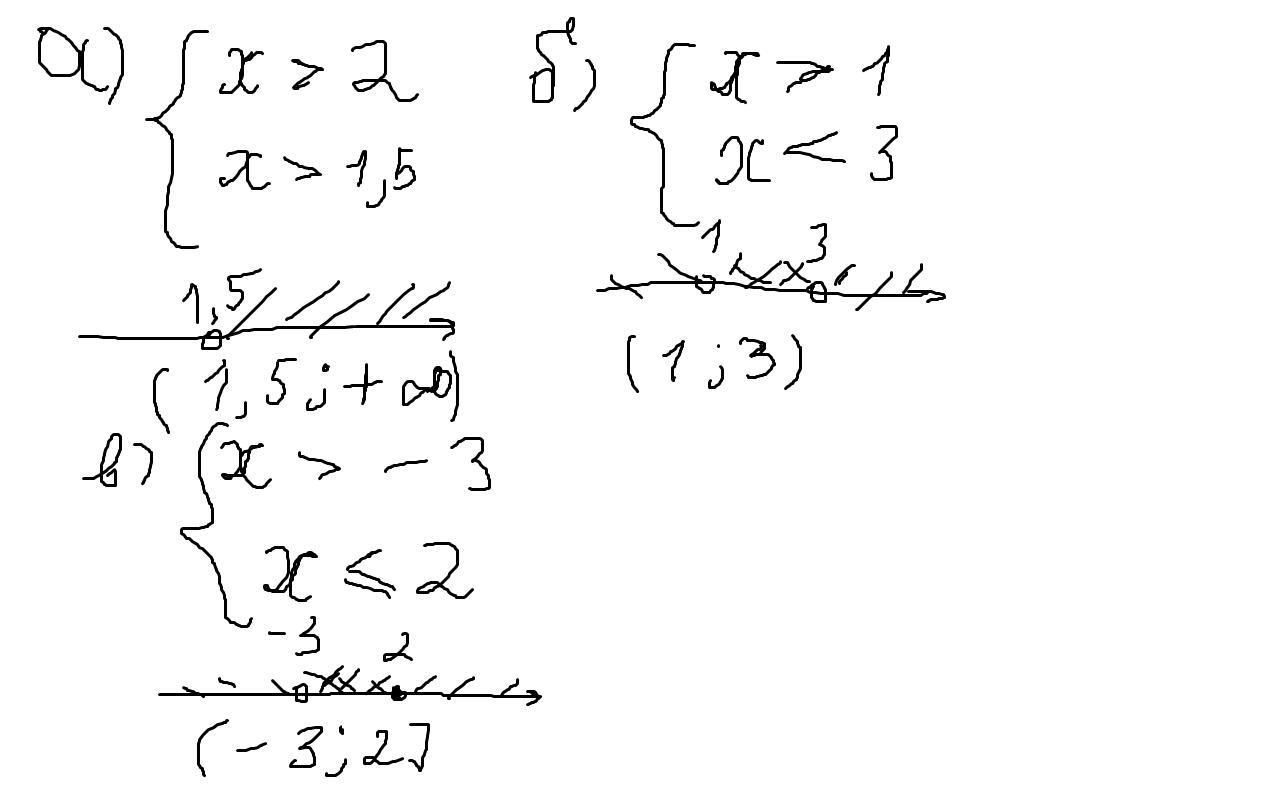 а) { x > 2
x > 1,5
1,5
(1,5; +∞)
б) { x > 1
x < 3
1 3
(1; 3)
в) { x > -3
x ≤ 2
-3 2
(-3; 2]